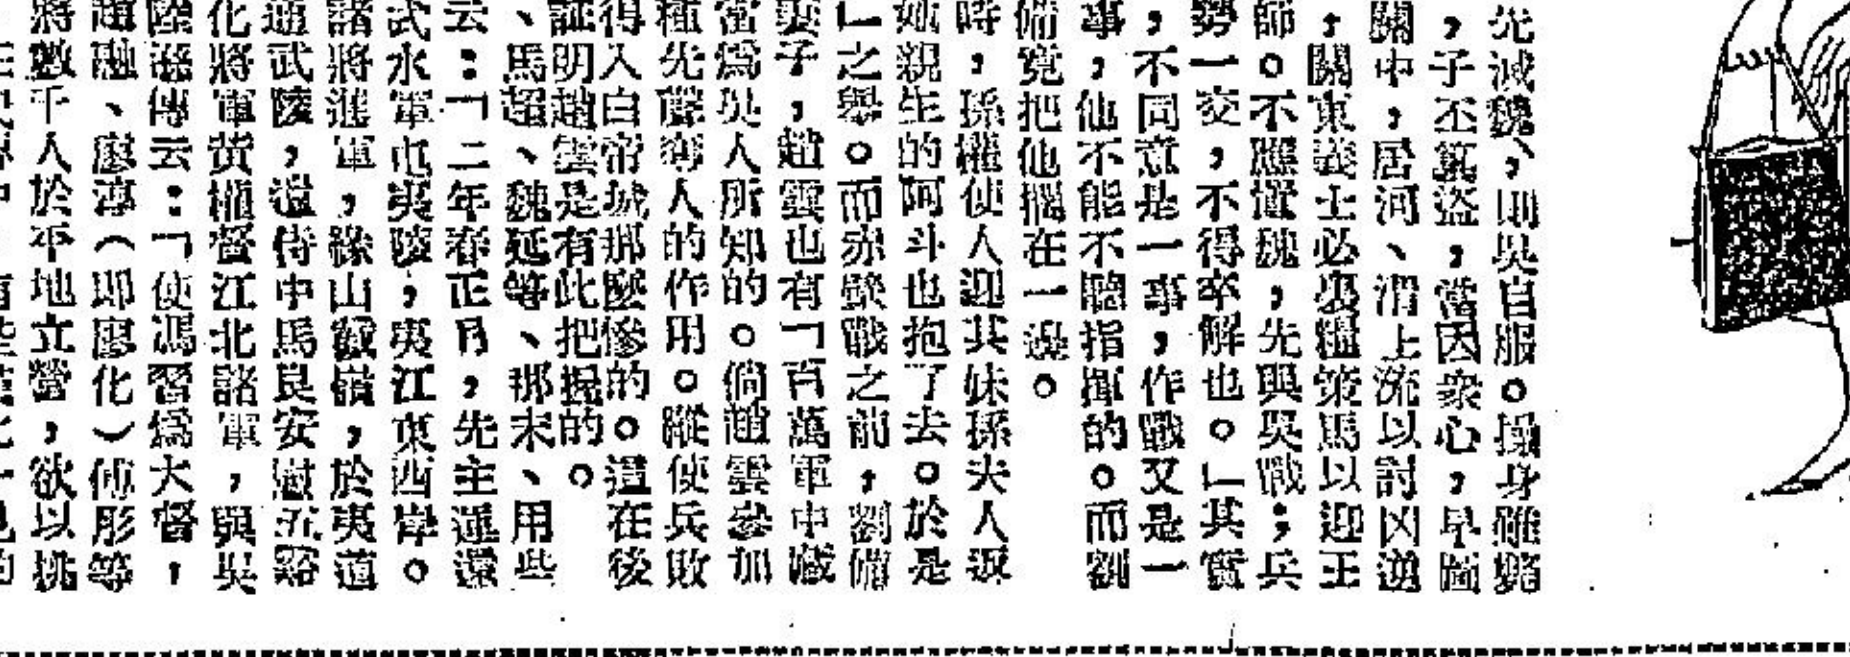 先滅魏，則吳自服。操身雖斃
，子丕篡盜，當因衆心，早圖
關中，居河、渭上流以討凶逆
，關東義士必裹糧策馬以迎王
師。不應置魏，先與吳戰；兵
勢一交，不得卒解也。」其實
，不同意是一事，作戰又是一
事，他不能不聽指揮的。而劉
備竟把他擱在一邊。
時，孫權使人迎其妹孫夫人返
親生的阿斗也抱了去。於是
」之舉。而赤壁戰之前，劉備
妻子，趙雲也有「百萬軍中藏
當爲吳人所知的。倘趙雲參加
種先聲奪人的作用。縱使兵敗
得入白帝城那麼慘的。這在後
証明趙雲是有此把握的。
、馬超、魏延等、那末、用些
云：「二年春正月，先主軍還
武水軍屯夷陵，夷江東西岸。
諸將進軍，緣山截嶺，於夷道
通武陵，遣侍中馬良安慰五谿
化將軍黃權督江北諸軍，與吳
陸遜傳云：「使馮習爲大督，
趙融、廖淳（即廖化）傅彤等
將數千人於平地立營，欲以挑